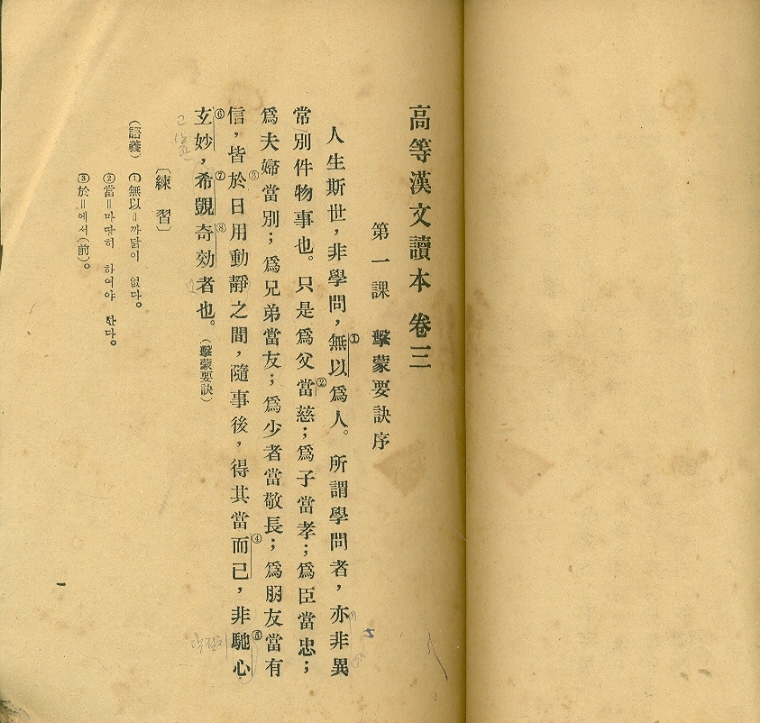 高等漢文讀本 卷三
第一課 擊蒙要訣序
人生斯世，非學問，無以①爲人。所謂學問者，亦非異
常別件物事也。只是爲父當②慈；爲子當孝；爲臣當忠；
爲夫婦當別；爲兄弟當友；爲少者當敬長；爲朋友當有
信，皆於③日用動靜之間，隨事後，得其當而已④，非馳心⑤
玄妙⑥，希覬⑦奇効⑧者也。(擊蒙要訣)
〔練習〕
(語義) ①無以＝까닭이 없다。
②當＝마땅히 하여야 한다。
③於＝에서(前)。